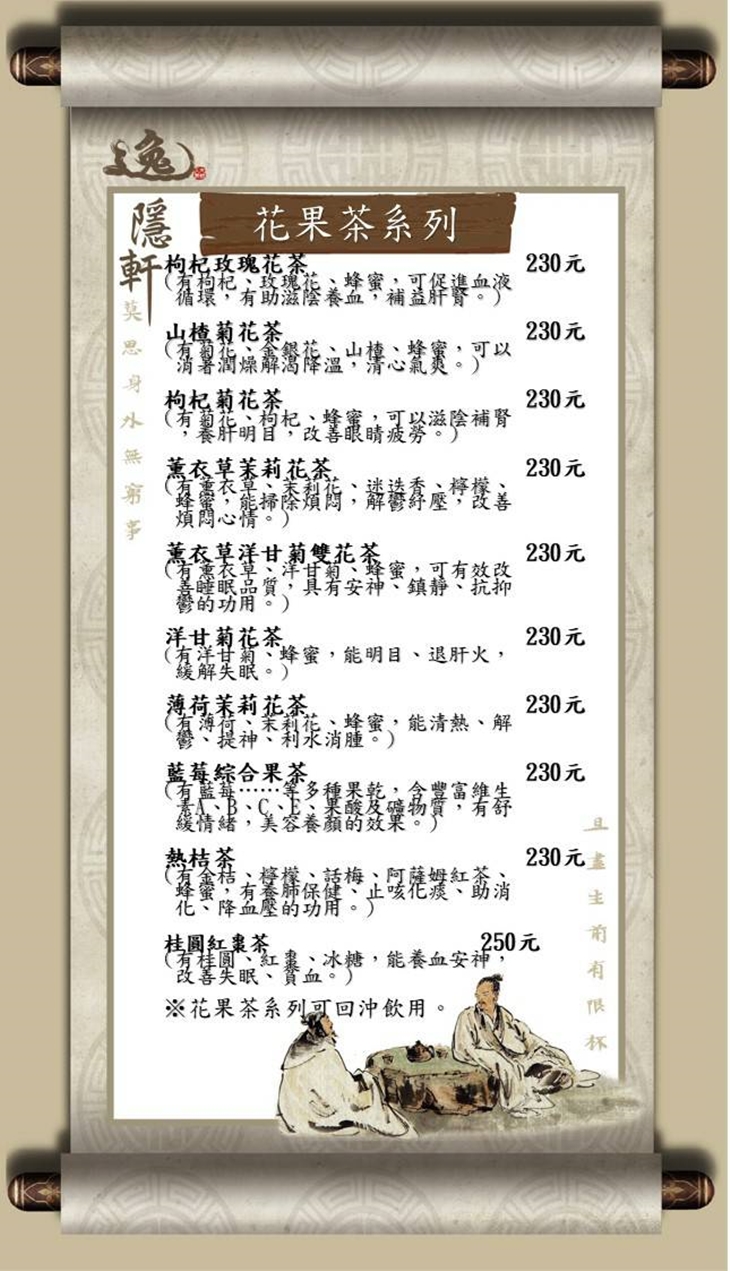 逸
隱軒
花果茶系列
莫思身外無窮事
枸杞玫瑰花茶 230元
(有枸杞、玫瑰花、蜂蜜，可促進血液
循環，有助滋陰養血，補益肝腎。)
山楂菊花茶 230元
(有菊花、金銀花、山楂、蜂蜜，可以
消暑潤燥解渴降溫，清心氣爽。)
枸杞菊花茶 230元
(有菊花、枸杞、蜂蜜，可以滋陰補腎
，養肝明目，改善眼睛疲勞。)
薰衣草茉莉花茶 230元
(有薰衣草、茉莉花、迷迭香、檸檬、
蜂蜜，能掃除煩悶，解鬱紓壓，改善
煩悶心情。)
薰衣草洋甘菊雙花茶 230元
(有薰衣草、洋甘菊、蜂蜜，可有效改
善睡眠品質，具有安神、鎮靜、抗抑
鬱的功用。)
洋甘菊花茶 230元
(有洋甘菊、蜂蜜，能明目、退肝火，
緩解失眠。)
薄荷茉莉花茶 230元
(有薄荷、茉莉花、蜂蜜，能清熱、解
鬱、提神、利水消腫。)
藍莓綜合果茶 230元
(有藍莓……等多種果乾，含豐富維生
素A、B、C、E、果酸及礦物質，有舒
緩情緒，美容養顏的效果。)
熱桔茶 230元
(有金桔、檸檬、話梅、阿薩姆紅茶、
蜂蜜，有養肺保健、止咳化痰、助消
化、降血壓的功用。)
桂圓紅棗茶 250元
(有桂圓、紅棗、冰糖，能養血安神，
改善失眠、貧血。)
※花果茶系列可回沖飲用。
且盡生前有限杯